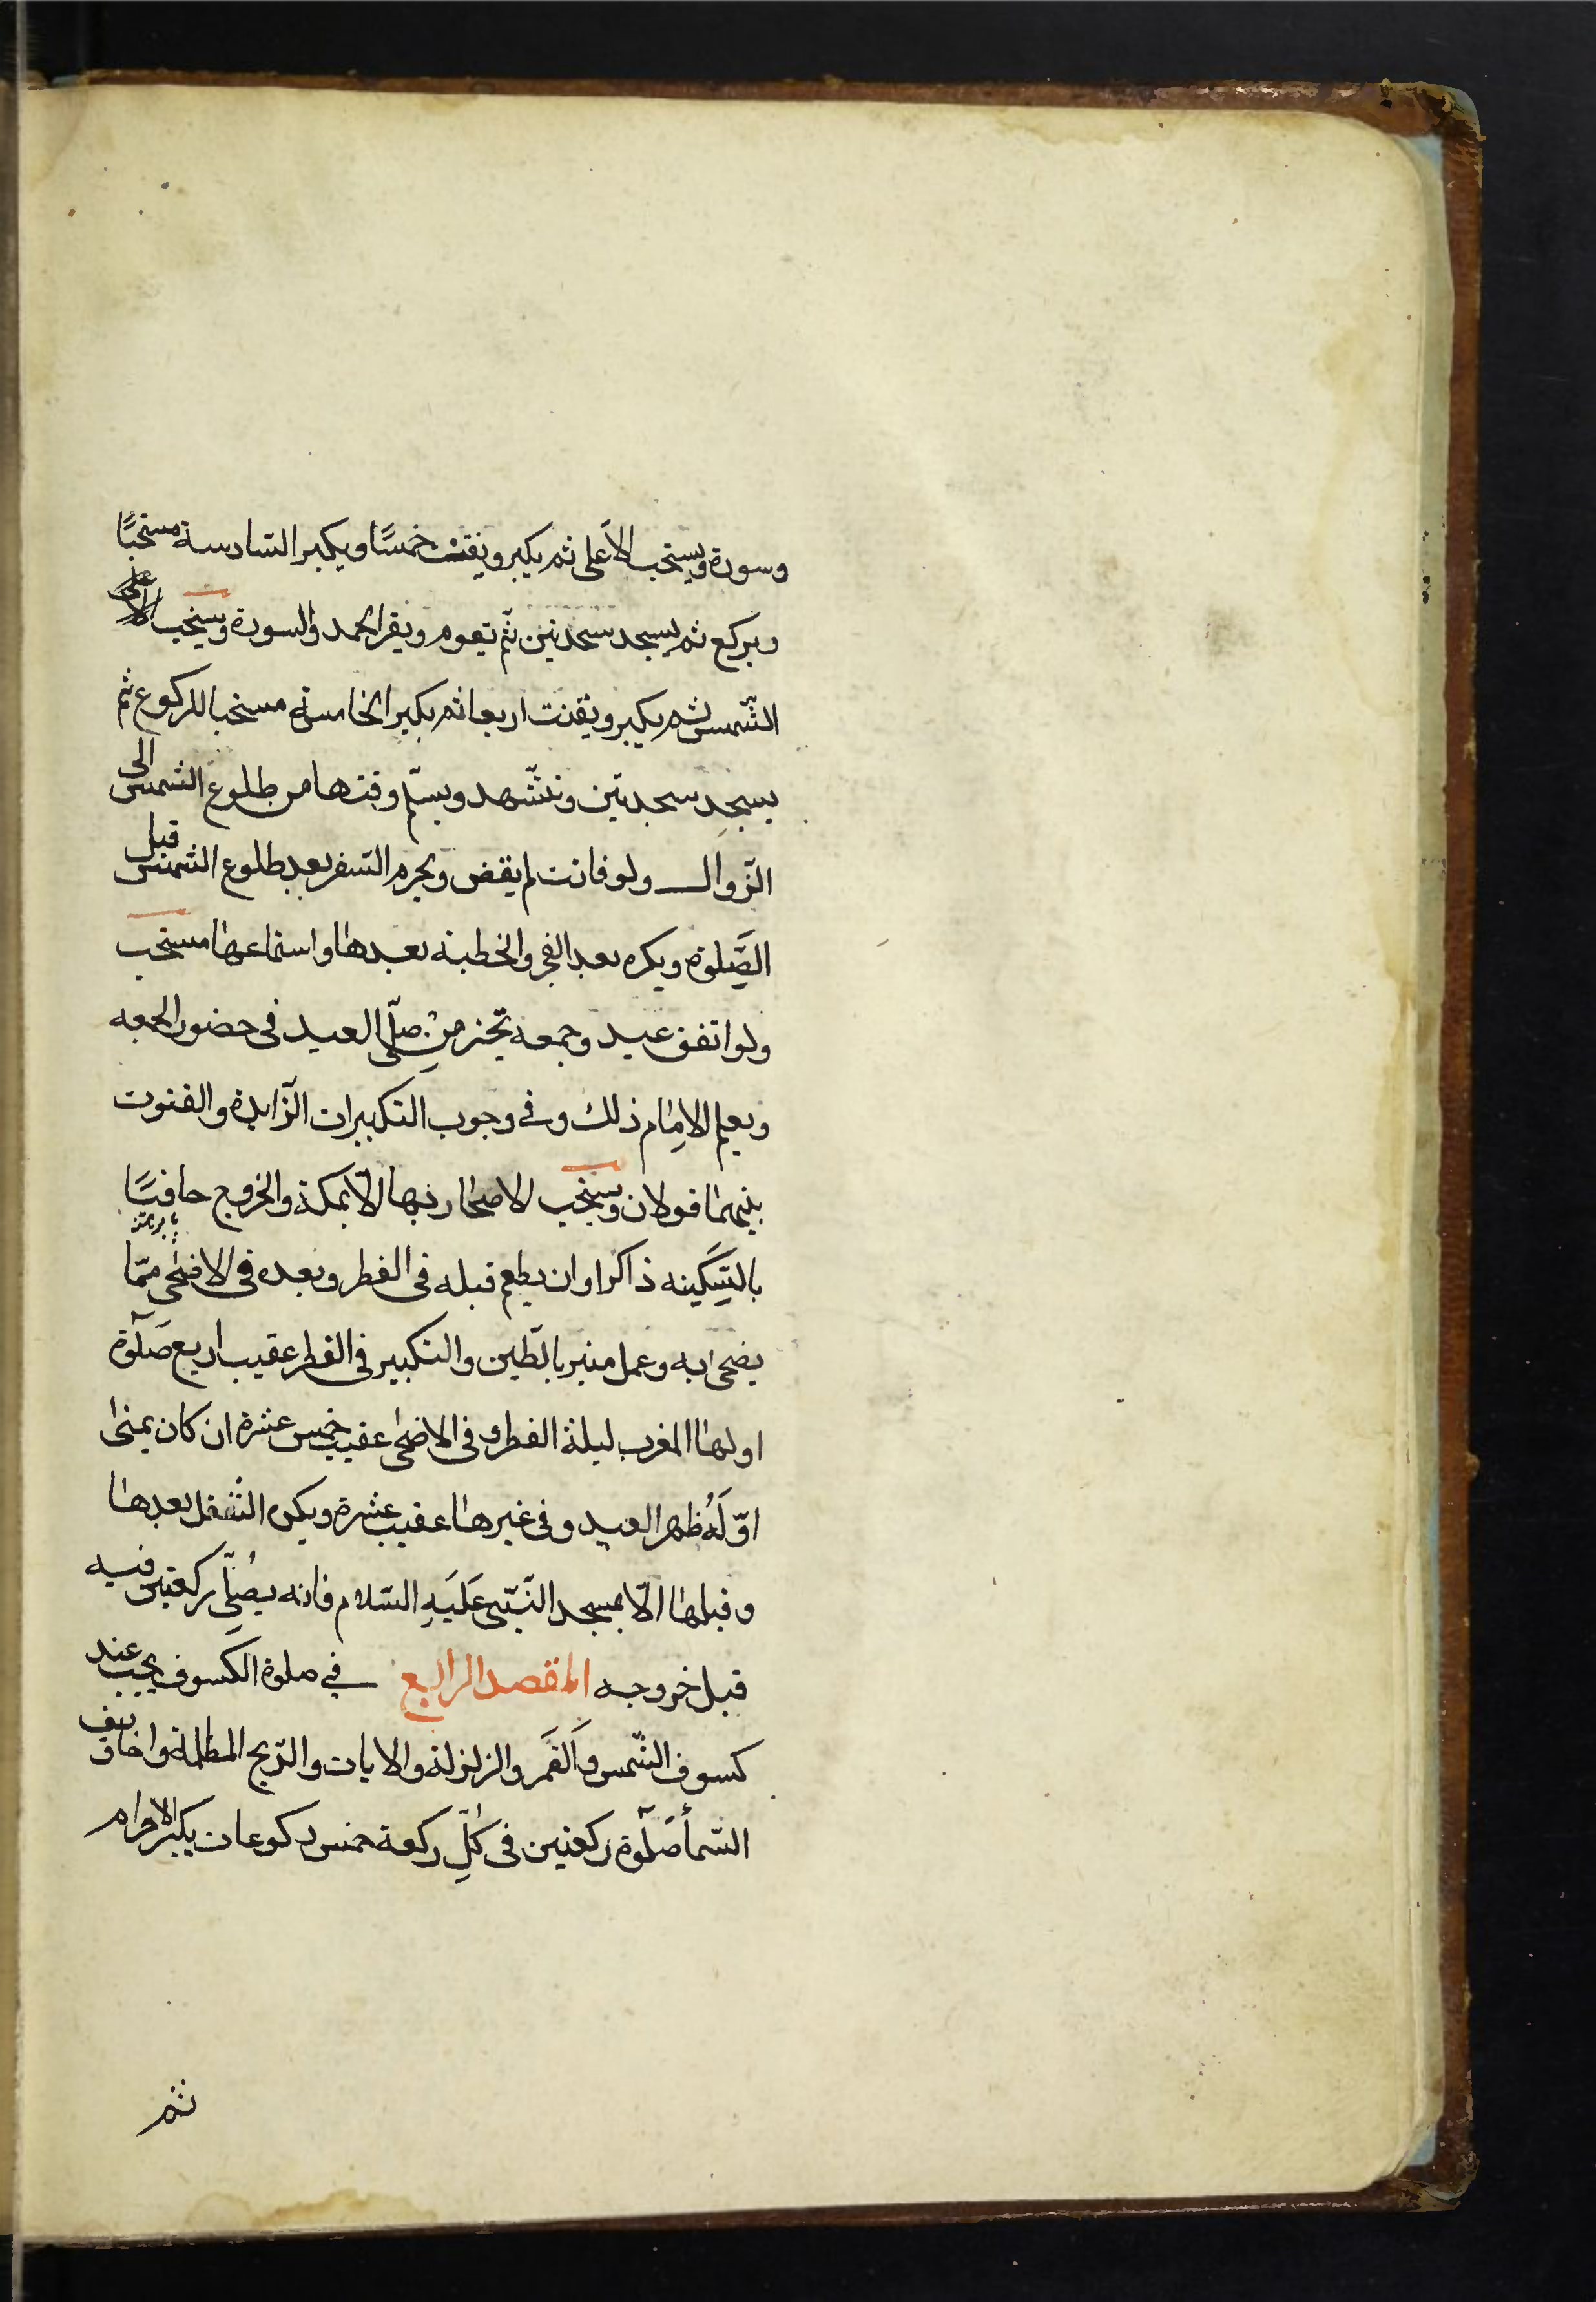 وسورة ويستحب الاَعلى ثم يكبر ويقنت خمسًا ويكبر السّادسة مستحبًا
ويركع ثم يسجد سجدتين ثمّ يقوم ويقرا الحمد والسورة ويستحب
الشّمس ثم يكبر ويقنت اربعا ثم يكبر الخامسة مستحبا للركوع ثم
يسجد سجدتين ويتشّهد ويسلّم وقتها من طلوع الشمس الى
الزّوال ولو فاتت لم يقض ويحرم السّفر بعد طلوع الشمس قبل
الصَّلوة ويكره بعد الفجر والخطبة بعدها واستماعها مستحب
ولو اتفق عيد وجمعه تخير من صلّى العيد فى حضور الجمعه
ويعلم الامِام ذلك وفى وجوب التكبيرات الزّايدة والقنوت
بينهما قولان ويستحب الاصحار بها الاّ بمكة والخروج حافيًا
بالسَّكِينه ذاكرا وان يطعم قبله فى الفطر وبعده فى الاضحى ممّا
يضحى به وعمل منبر بالطّين والتكبير فى الفطر عقيب اربع صَلوة
اولها المغرب ليلة الفطر وفى الاضحى عقيب خمس عشرة ان كان بمنى
اوّلَهُ ظهر العيد وفى غيرها عقيب عشرة ويكره التنفل بعدها
وقبلها الاّ بمسجد النّبّى عَلَيَهِ السّلام فانه يُصلّى ركعتين فيه
قبل خروجه المقصد الرابع فى صلوة الكسوف يجب عند
كسوف الشّمس وَالقَمَر والزلزلة والايات والرّيح المظلمة واخاويف
السّمأ صَلوة ركعتين فى كلّ ركعة خمس ركوعات يكبر للاحرام
ثم